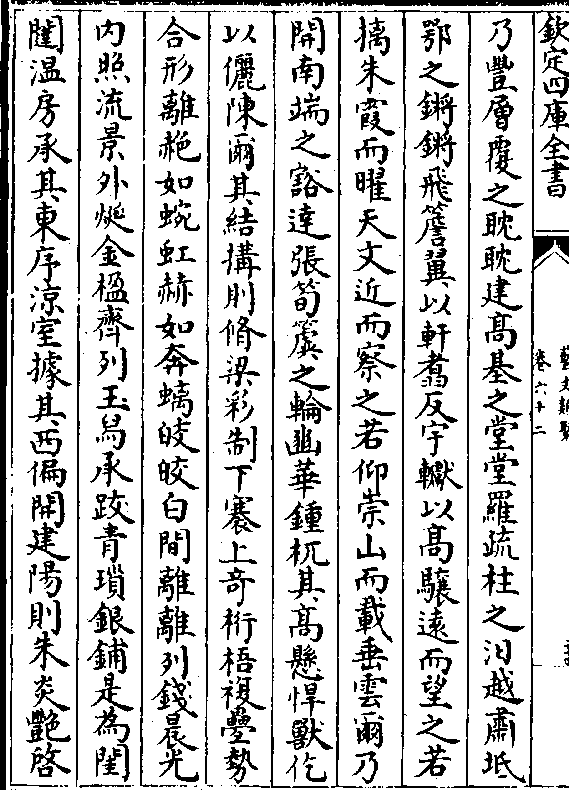 欽定四庫全書
藝文類聚
卷六十二
乃豐層覆之耽耽建髙基之堂堂羅疏柱之汩越肅坻
鄂之鏘鏘飛簷翼以軒翥反宇轙以髙驤逺而望之若
摛朱霞而曜天文近而察之若仰崇山而載垂雲爾乃
開南端之豁達張筍簴之輪豳華鍾杌其髙懸悍獸仡
以儷陳爾其結搆則脩梁彩制下褰上竒桁梧複疊勢
合形離赩如蜿虹赫如奔螭皎皎白間離離列錢晨光
内照流景外烻金楹齊列玉舄承跋青瑣銀鋪是為閨
闥温房承其東序涼室據其西偏開建陽則朱炎艷啓